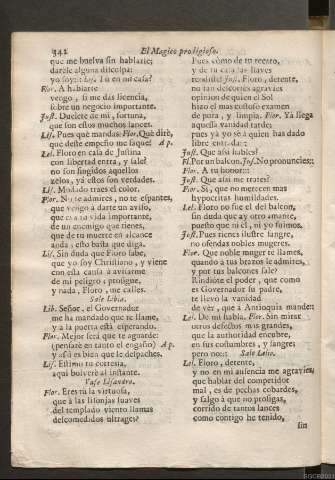 342
El Magico prodigioso.
que me buelva sin hablarle;
darèle alguna disculpa:
yo soy::: Just. Tù en mi casa?
Flor. A hablarte
vengo, si me dàs licencia,
sobre un negocio importante.
Just. Duelete de mi, fortuna,
que son estos muchos lances.
Lis. Pues què mandas? Flor. Què dirè,
que deste empeño me saque! A p.
Lel. Floro en casa de Justina
con libertad entra, y sale?
no son fingidos aquellos
zelos, yà estos son verdades.
Lis. Mudado traes el color.
Flor. No te admires, no te espantes,
que vengo à darte un aviso,
que es à tu vida importante,
de un enemigo que tienes,
que de tu muerte en alcance
anda; esto basta que diga.
Lis. Sin duda que Floro sabe,
que yo soy Christiano, y viene
con esta causa à avisarme
de mi peligro; prosigue,
y nada, Floro, me calles.
Sale Libia.
Lib. Señor, el Governador
me ha mandado que te llame,
y à la puerta està esperando.
Flor. Mejor serà que te aguarde:
(pensarè en tanto el engaño) A p.
y assi es bien que le despaches.
Lis. Estimo tu cortesia,
aqui bolverè al instante.
Vase Lisandro.
Flor. Eres tù la virtuosa,
que à las lisonjas suaves
del templado viento llamas
descomedidos ultrages?
Pues còmo de tu recato,
y de tu casa las llaves
rendiste? Just. Floro, detente,
no tan descortès agravies
opinion de quien el Sol
hizo el mas costoso examen
de pura, y limpia. Flor. Yà llega
aquessa vanidad tarde;
pues yà yo sè à quien has dado
libre entrada::
Just. Que assi hables?
Fl. Por un balcon. Just. No pronuncies::
Flor. A tu honor:::
Just. Que assi me trates?
Flor. Si, que no merecen mas
hypocritas humildades.
Lel. Floro no fue el del balcon,
sin duda que ay otro amante,
puesto que ni èl, ni yo fuimos.
Just. Pues tienes ilustre sangre,
no ofendas nobles mugeres.
Flor. Que noble muger te llames,
quando à tus brazos le admites,
y por tus balcones sale?
Rindiòte el poder, que como
es Governador su padre,
te llevò la vanidad
de vèr, que à Antioquia mande::
Lel. De mi habla. Flor. Sin mirar
otros defectos mas grandes,
que la authoridad encubre,
en sus costumbres, y sangre;
pero no::: Sale Lelio.
Lel. Floro, detente,
y no en mi ausencia me agravies,
que hablar del competidor
mal, es de pechos cobardes,
y salgo à que no prosigas,
corrido de tantos lances
como contigo he tenido,
sin
BGCR2021